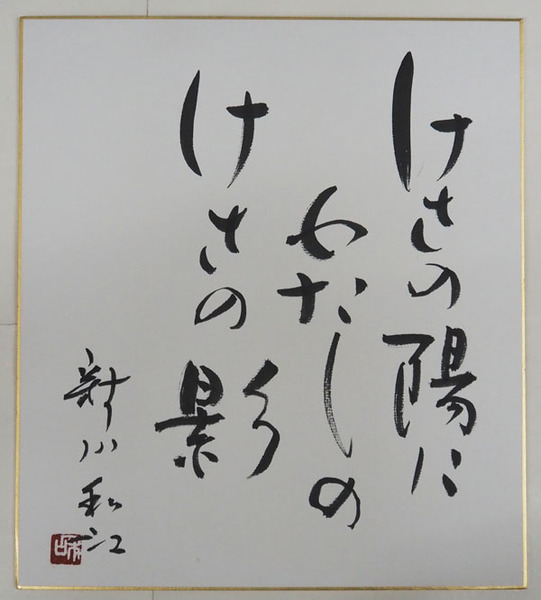 けさの陽に
わたしの
けさの影
新川和江